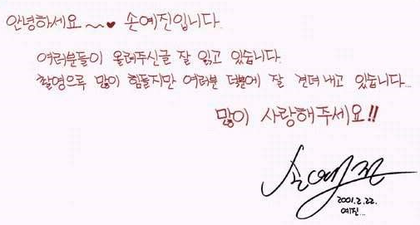 안녕하세요~♥ 손예진입니다.
여러분들이 올려주신글 잘 읽고 있습니다.
촬영으루 많이 힘들지만 여러분 덕분에 잘 견뎌내고 있습니다...
많이 사랑해주세요!!
손예진
2001.2.22.
예진...